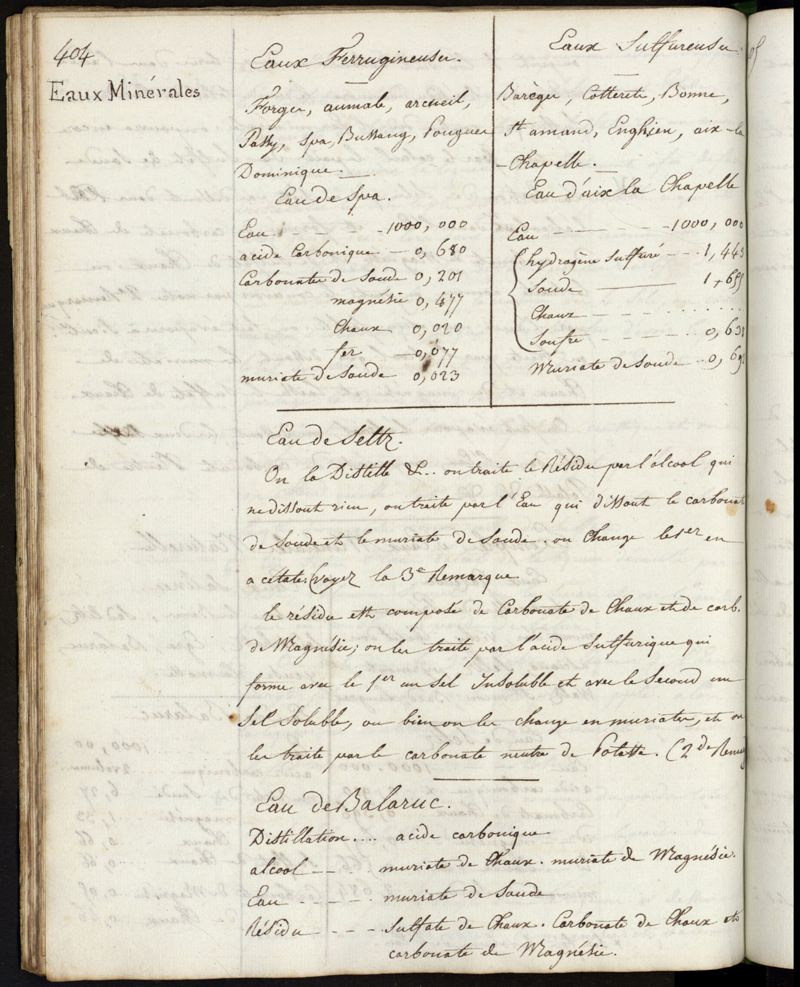 404
Eaux Minérales
Eaux Ferrugineuses.
Forges, aumale, arcueil,
Passy, Spa, Bussang, Pougues
Dominique.
Eau de Spa.
Eau 1000,000
acide Carbonique 0,680
Carbonate de Soude 0,201
magnésie 0,477
Chaux 0,020
fer 0,077
muriate de Soude 0,023
Eaux Sulfureuses.
Barèges, Cotterets, Bonne,
St amand, Enghien, aix-la
-Chapelle.
Eau d'aix la Chapelle
Eau 1000,000
hydrogène Sulfuré 1,443
Soude
Chaux
Soufre 0,63
Muriate de Soude 0,69
Eau de Seltz.
On la Distille &.. on traite le Résidu par l'alcool qui
ne dissout rien, on traite par l'Eau qui dissout le carbonate
de Soude et le muriate de Soude. on Change le 1er en
acétate: (voyez la 3e Remarque
le résidu est composé de Carbonate de Chaux et de carb.
de Magnésie; on les traite par l'acide Sulfurique qui
forme avec le 1er un Sel Insoluble et avec le Second un
Sel Soluble, ou bien on les change en muriates, et on
les traite par le carbonate neutre de Potasse. (2de Remar
Eau de Balaruc.
Distillation.... acide carbonique
alcool - - - - muriate de Chaux. muriate de Magnésie.
Eau - - - - - muriate de Soude
Résidu - - - Sulfate de Chaux. Carbonate de Chaux et
carbonate de Magnésie.